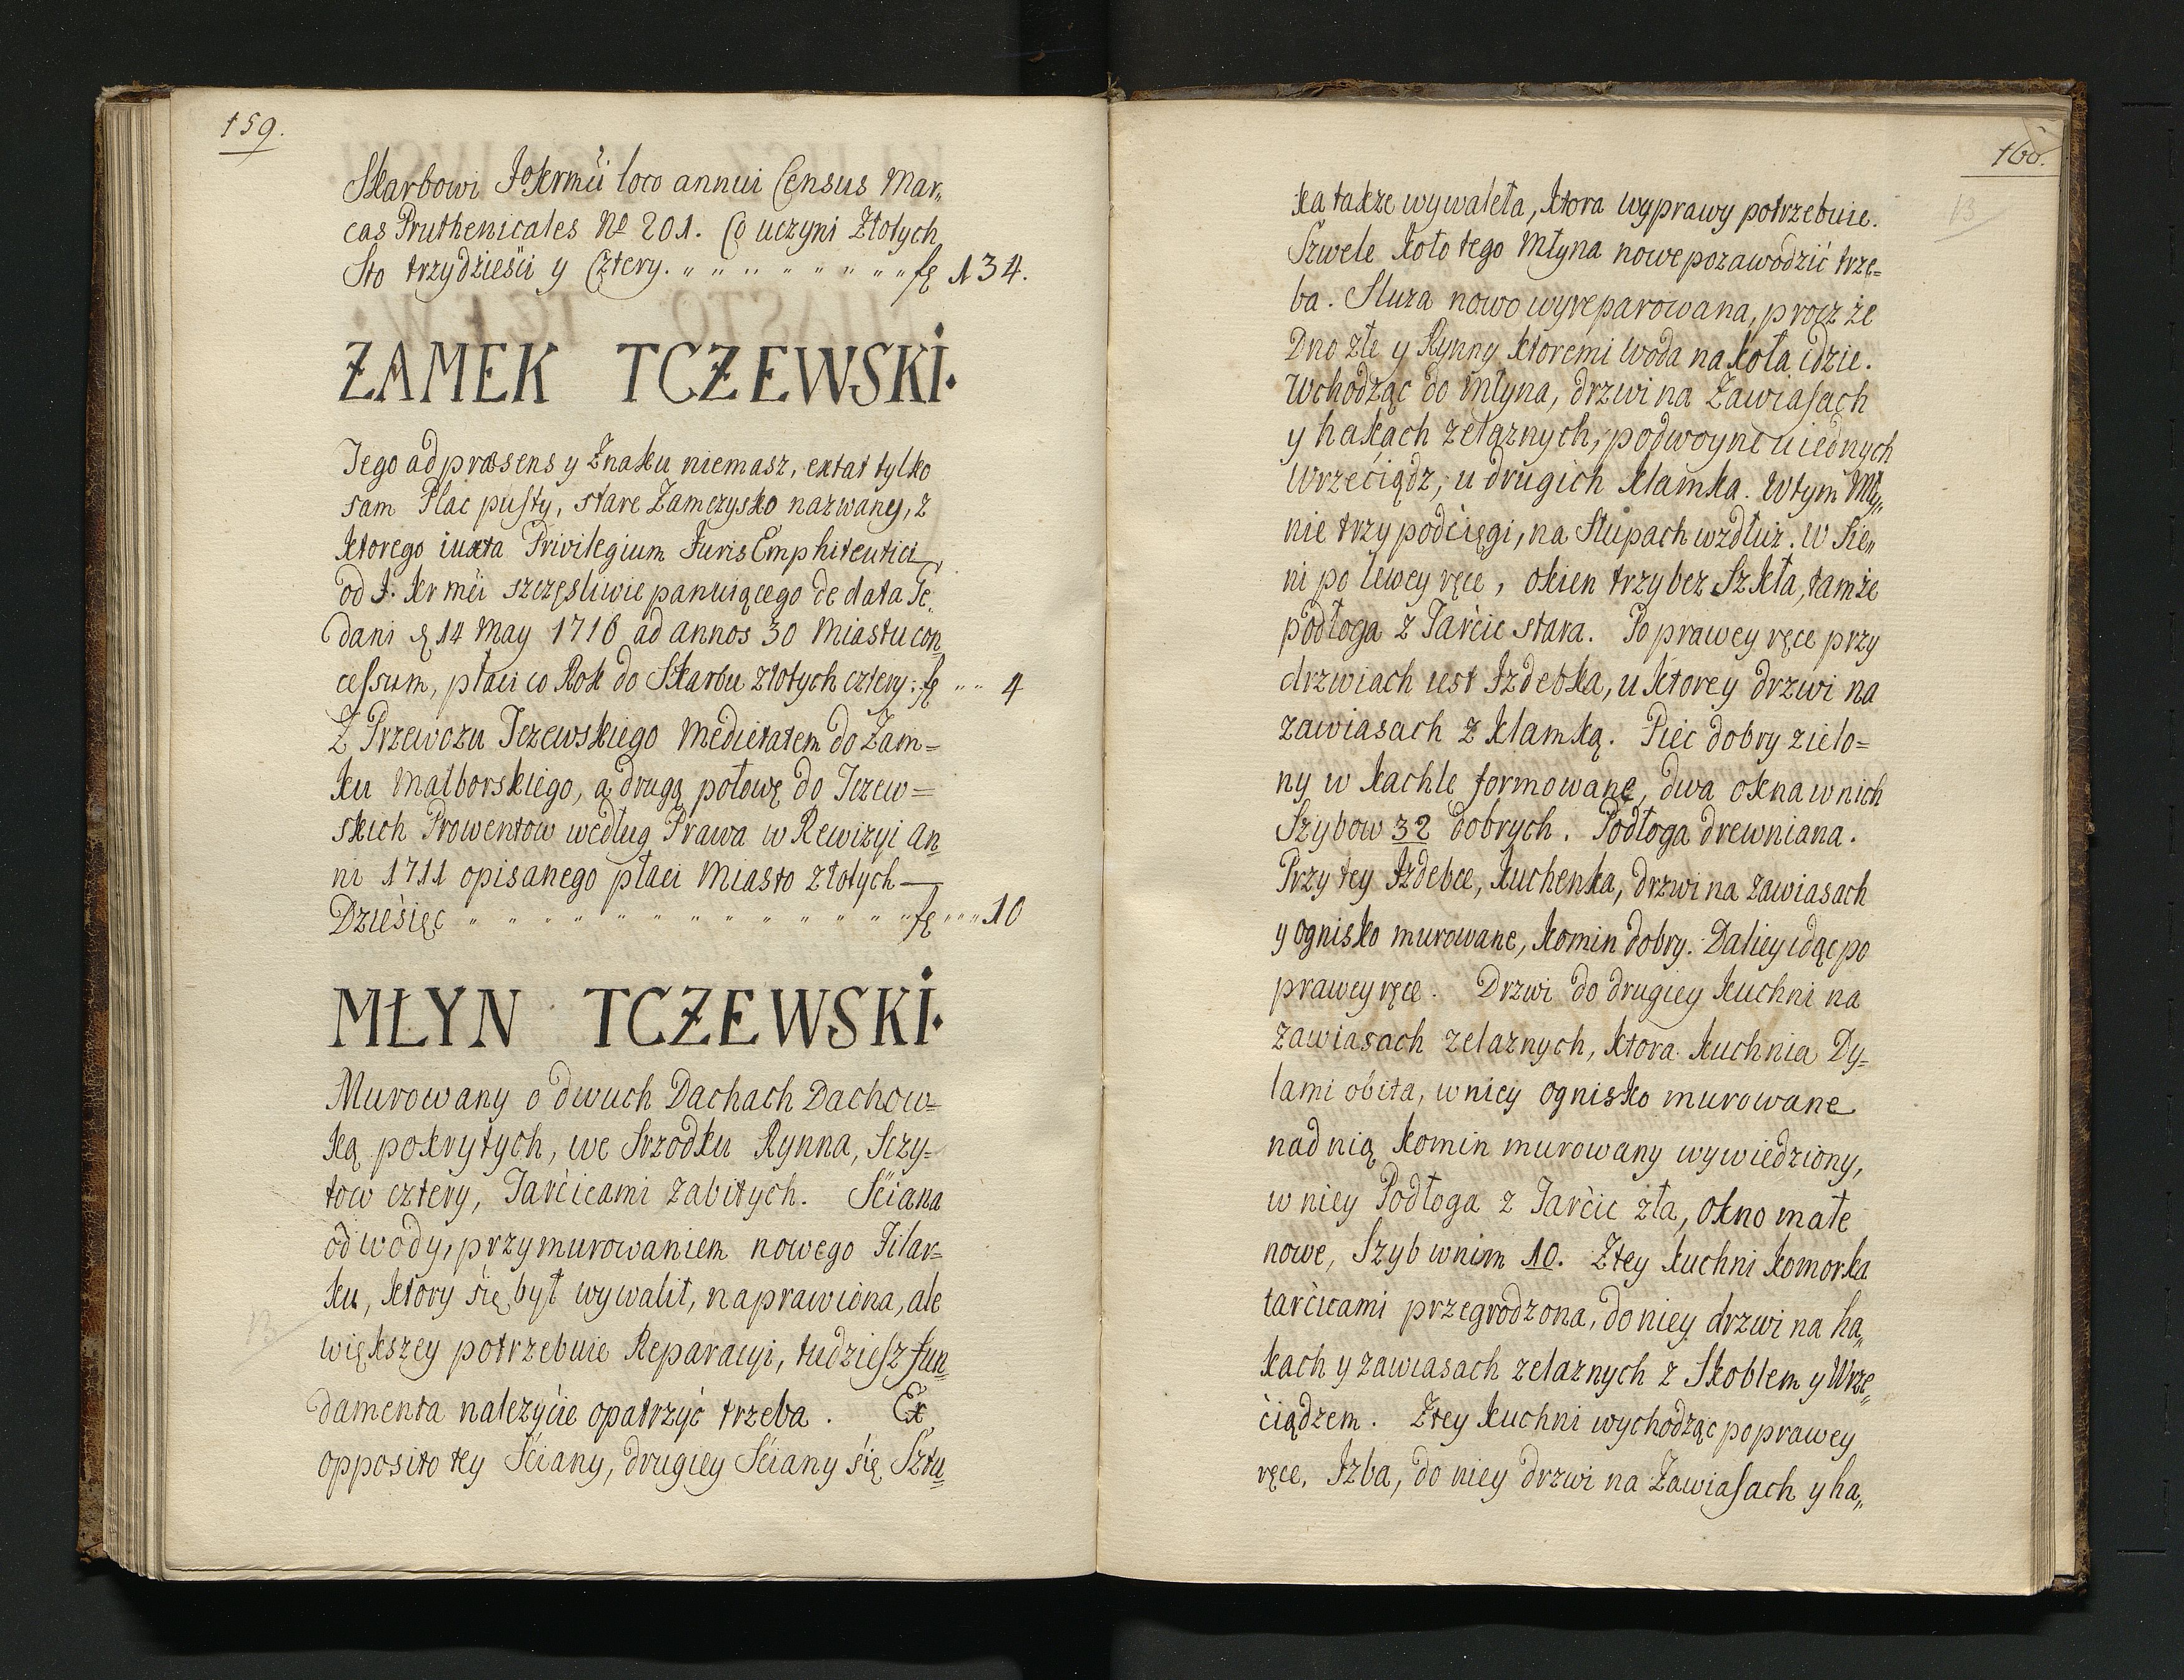 159.
Skarbowi JoKrmći loco annui Census Mar„
cas Pruthenicales No 201. Co uczyni Złotych
Sto trzydzieśći y Cztery. " " " " " " " " fl 134.
ZAMEK TCZEWSKI.
Tego ad præsens y Znaku niemasz, extat tylko
sam Plac pusty, stare Zamczysko nazwany, z
ktorego iuxta Privilegium Juris Emphiteutici
od J. Kr mći szczęsliwie panuiącego de data Ge„
dani d. 14 May 1716 ad annos 30 Miastu con„
cessum, płaci co Rok do Skarbu złotych cztery: fl " " 4
Z Przewozu Tczewskiego Medietatem do Zam=
ku Malborskiego, a drugą połowę do Tczew=
skich Prowentow według Prawa w Rewizyi An„
ni 1711 opisanego płaci Miasto złotych
Dzieśięć " " " " " " " " " " " " " fl " " " 10
MŁYN TCZEWSKI.
Murowany o dwuch Dachach Dachow=
ką pokrytych, we Srzodku Rynna, Sczy=
tow cztery, Tarćicami zabitych. Sćiana
od wody, przymurowaniem nowego Filar=
ku, ktory się był wywalił, naprawiona, ale
większey potrzebuie Reparacyi, tudziesz fun„
damenta nalezyćie opatrzyć trzeba. Ex
opposito tey Śćiany, drugiey Śćiany się Sztu„
160.
13
ka także wywaleła, ktora wyprawy potrzebuie.
Szwele koło tego Młyna nowe pozawodzić trze=
ba. Sluza nowo wyreparowana, procz że
Dno złe y Rynny ktoremi woda na koła idzie.
Wchodząc do Młyna, drzwi na Zawiasach
y hakach zelaznych, podwoyne u iednych
Wrzećiądz, u drugich klamka. W tym Mły„
nie trzy podćięgi, na Słupach wzdłuż. W Sie„
ni po lewey ręce, okien trzy bez Szkła, tamże
podłoga z Tarćic stara. Po prawey ręce przy
drzwiach iest Izdebka, u ktorey drzwi na
zawiasach z klamką. Piec dobry zielo=
ny w kachle formowane, dwa okna w nich
Szybow 32 dobrych. Podłoga drewniana.
Przy tey Izdebce, kuchenka, drzwi na zawiasach
y ognisko murowane, komin dobry. Daliey idąc po
prawey ręce. Drzwi do drugiey kuchni na
zawiasach zelaznych, ktora kuchnia Dy=
lami obita, w niey ognisko murowane
nad nią komin murowany wywiedziony,
w niey Podłoga z Tarćic zła, Okno małe
nowe, Szyb w nim 10. Z tey kuchni komorka
tarćicami przegrodzona, do niey drzwi na ha„
kach y zawiasach zelaznych z Skoblem y Wrze„
ćiądzem. Z tey kuchni wychodząc po prawey
ręce, Izba, do niey drzwi na Zawiasach y ha„